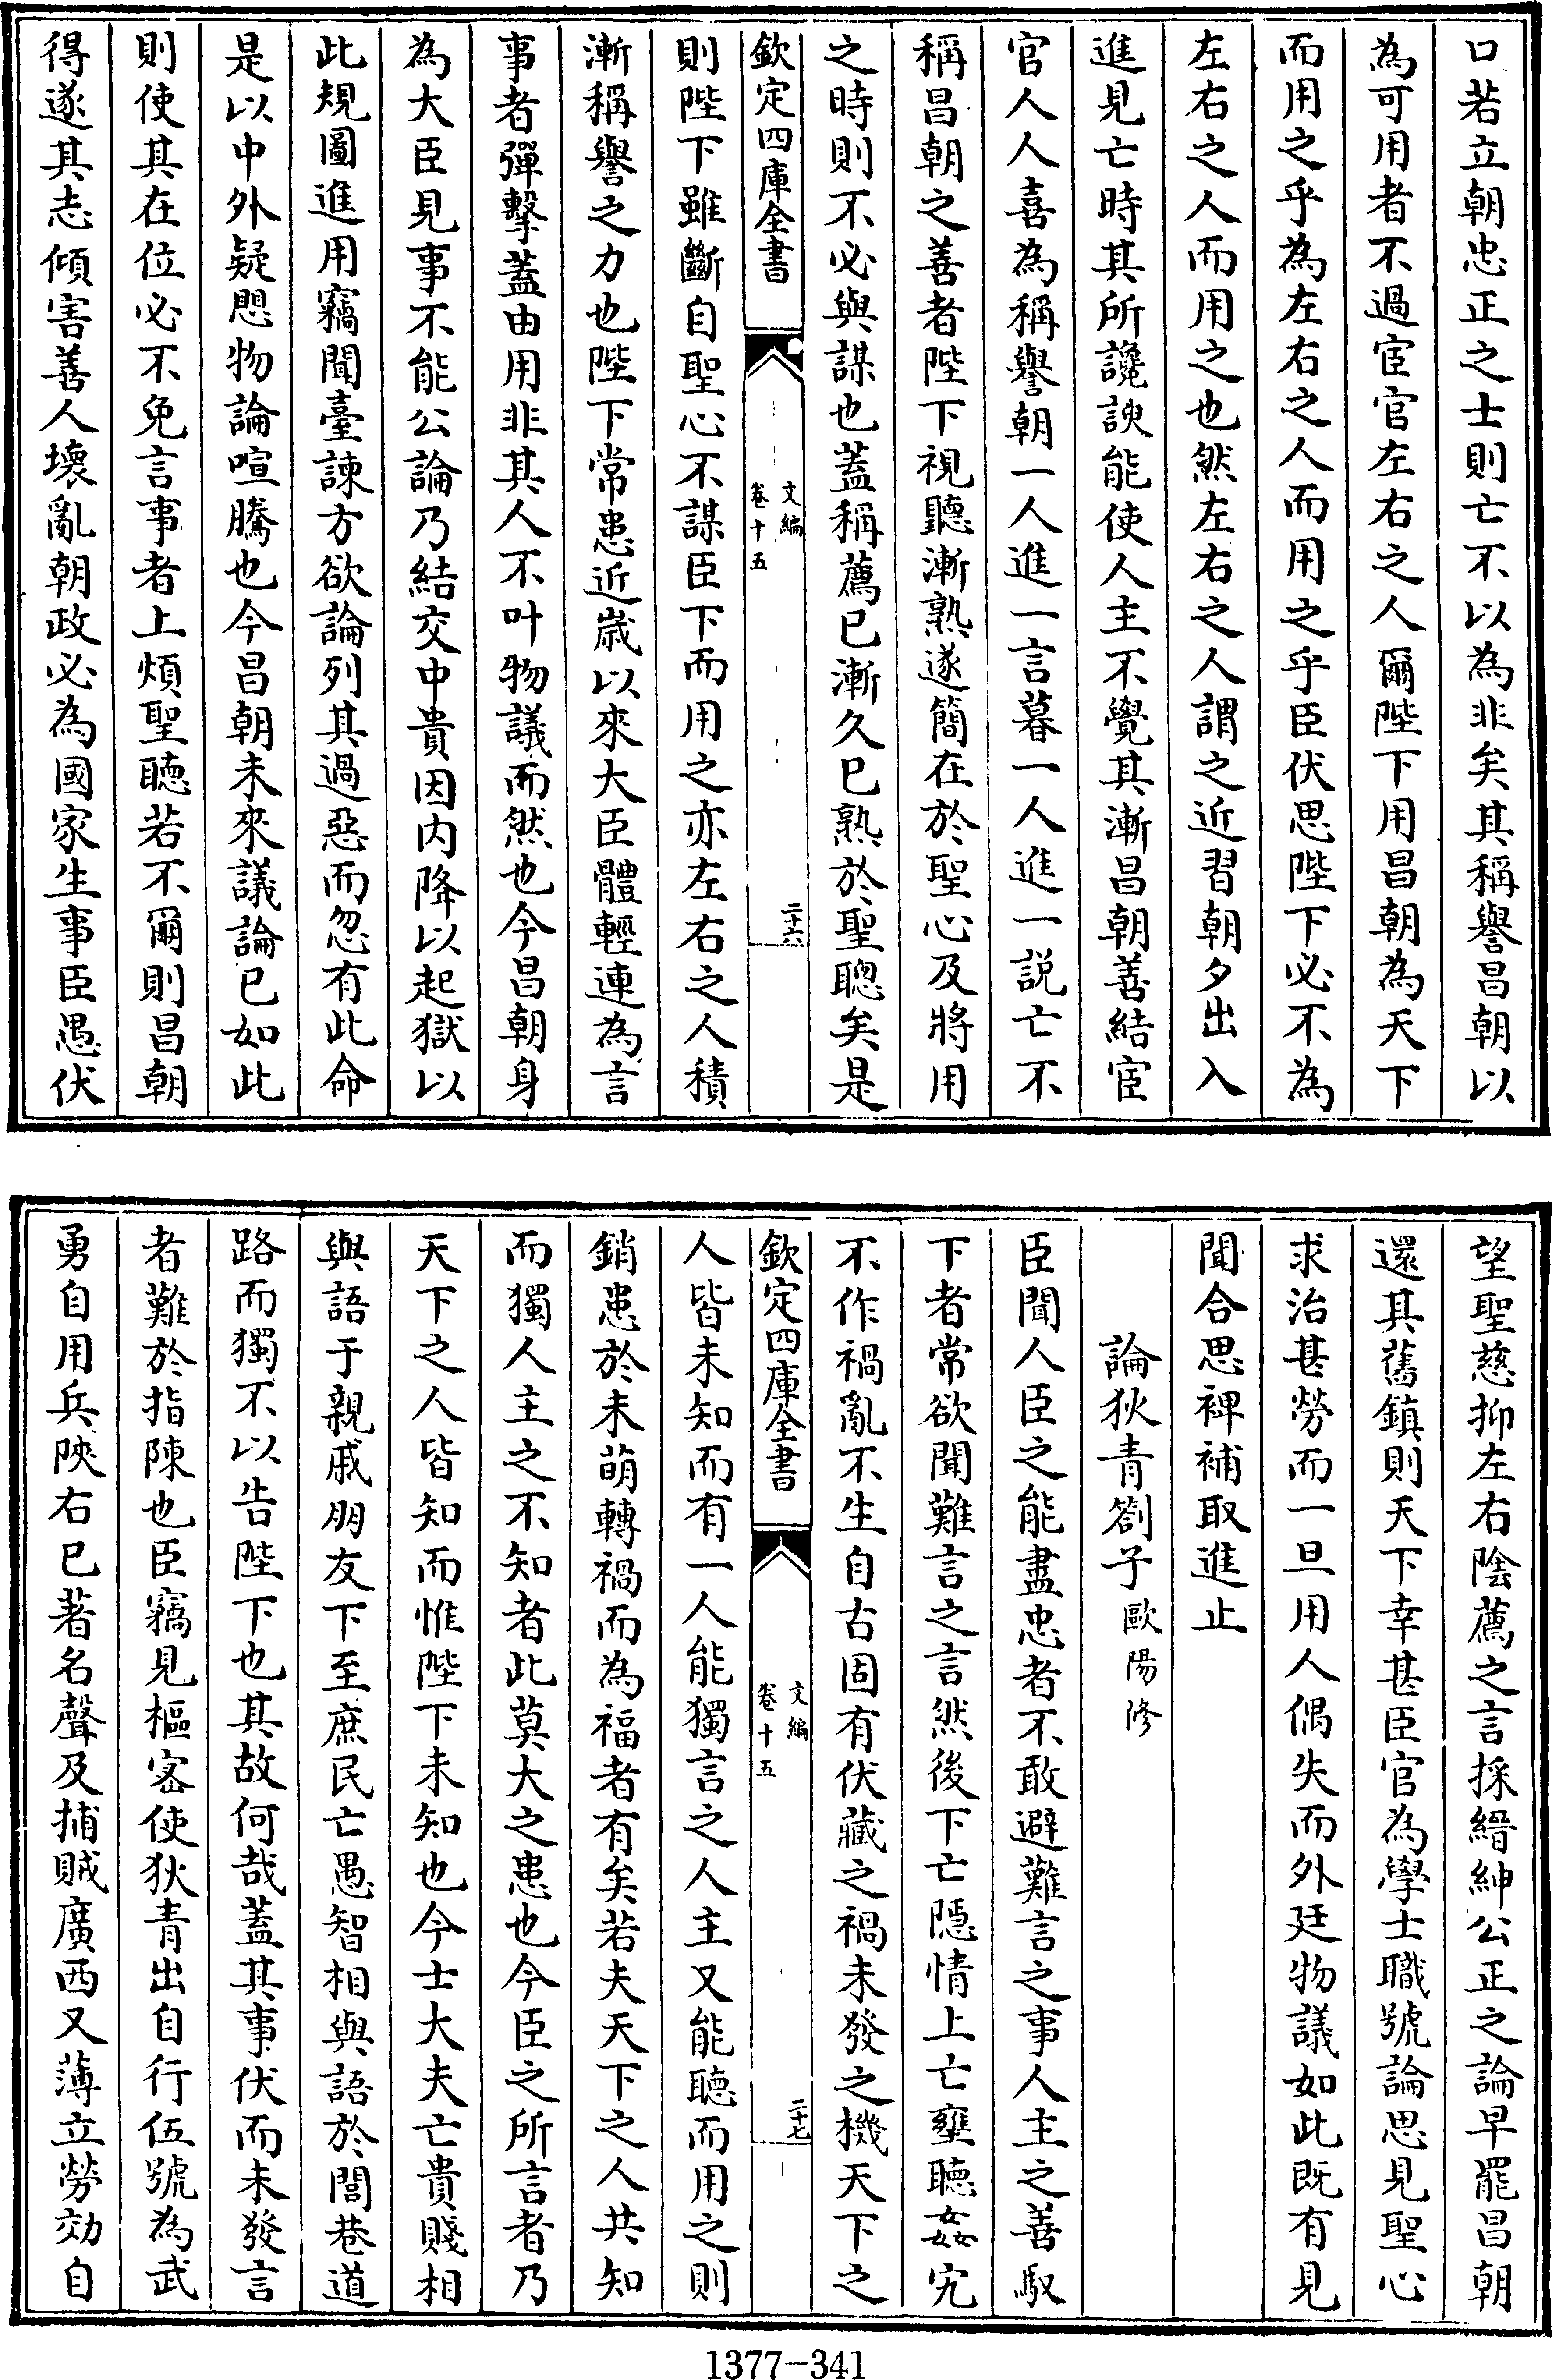 口若立朝忠正之士則亡不以為非矣其稱譽昌朝以
為可用者不過宦官左右之人爾陛下用昌朝為天下
而用之乎為左右之人而用之乎臣伏思陛下必不為
左右之人而用之也然左右之人謂之近習朝夕出入
進見亡時其所讒諛能使人主不覺其漸昌朝善結宦
官人人喜為稱譽朝一人進一言暮一人進一說亡不
稱昌朝之善者陛下視聽漸熟遂簡在於聖心及將用
之時則不必與謀也蓋稱薦已漸久已熟於聖聰矣是
欽定四庫全書
文編
卷十五
二十六
則陛下雖斷自聖心不謀臣下而用之亦左右之人積
漸稱譽之力也陛下常患近歲以來大臣體輕連為言
事者彈擊蓋由用非其人不叶物議而然也今昌朝身
為大臣見事不能公論乃結交中貴因內降以起獄以
此規圖進用竊聞臺諫方欲論列其過惡而忽有此命
是以中外疑懼物論喧騰也今昌朝未來議論已如此
則使其在位必不免言事者上煩聖聽若不爾則昌朝
得遂其志傾害善人壞亂朝政必為國家生事臣愚伏
望聖慈抑左右陰薦之言採縉紳公正之論早罷昌朝
還其舊鎮則天下幸甚臣官為學士職號論思見聖心
求治甚勞而一旦用人偶失而外廷物議如此既有見
聞合思裨補取進止
論狄青劄子歐陽修
臣聞人臣之能盡忠者不敢避難言之事人主之善馭
下者常欲聞難言之言然後下亡隱情上亡壅聽姦宄
不作禍亂不生自古固有伏藏之禍未發之機天下之
欽定四庫全書
文編
卷十五
二十七
人皆未知而有一人能獨言之人主又能聽而用之則
銷患於未萌轉禍而為福者有矣若夫天下之人共知
而獨人主之不知者此莫大之患也今臣之所言者乃
天下之人皆知而惟陛下未知也今士大夫亡貴賤相
與語于親戚朋友下至庶民亡愚智相與語於閭巷道
路而獨不以告陛下也其故何哉蓋其事伏而未發言
者難於指陳也臣竊見樞密使狄青出自行伍號為武
勇自用兵陝右已著名聲及捕賊廣西又薄立勞効自
1377-341